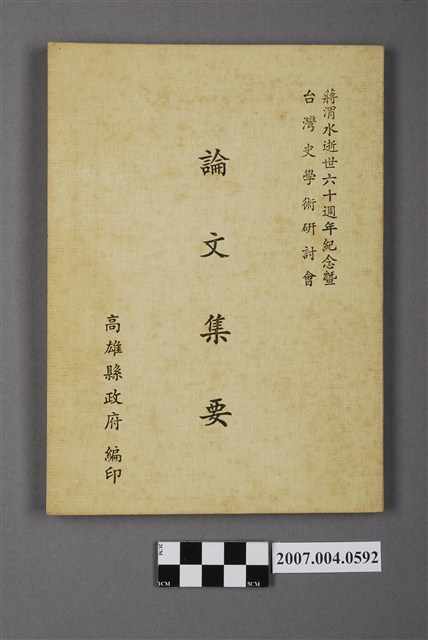 蔣渭水逝世六十週年紀念暨
台灣史學術研討會
論文集要
高雄縣政府 編印
2007.004.0592
1CM
5CM